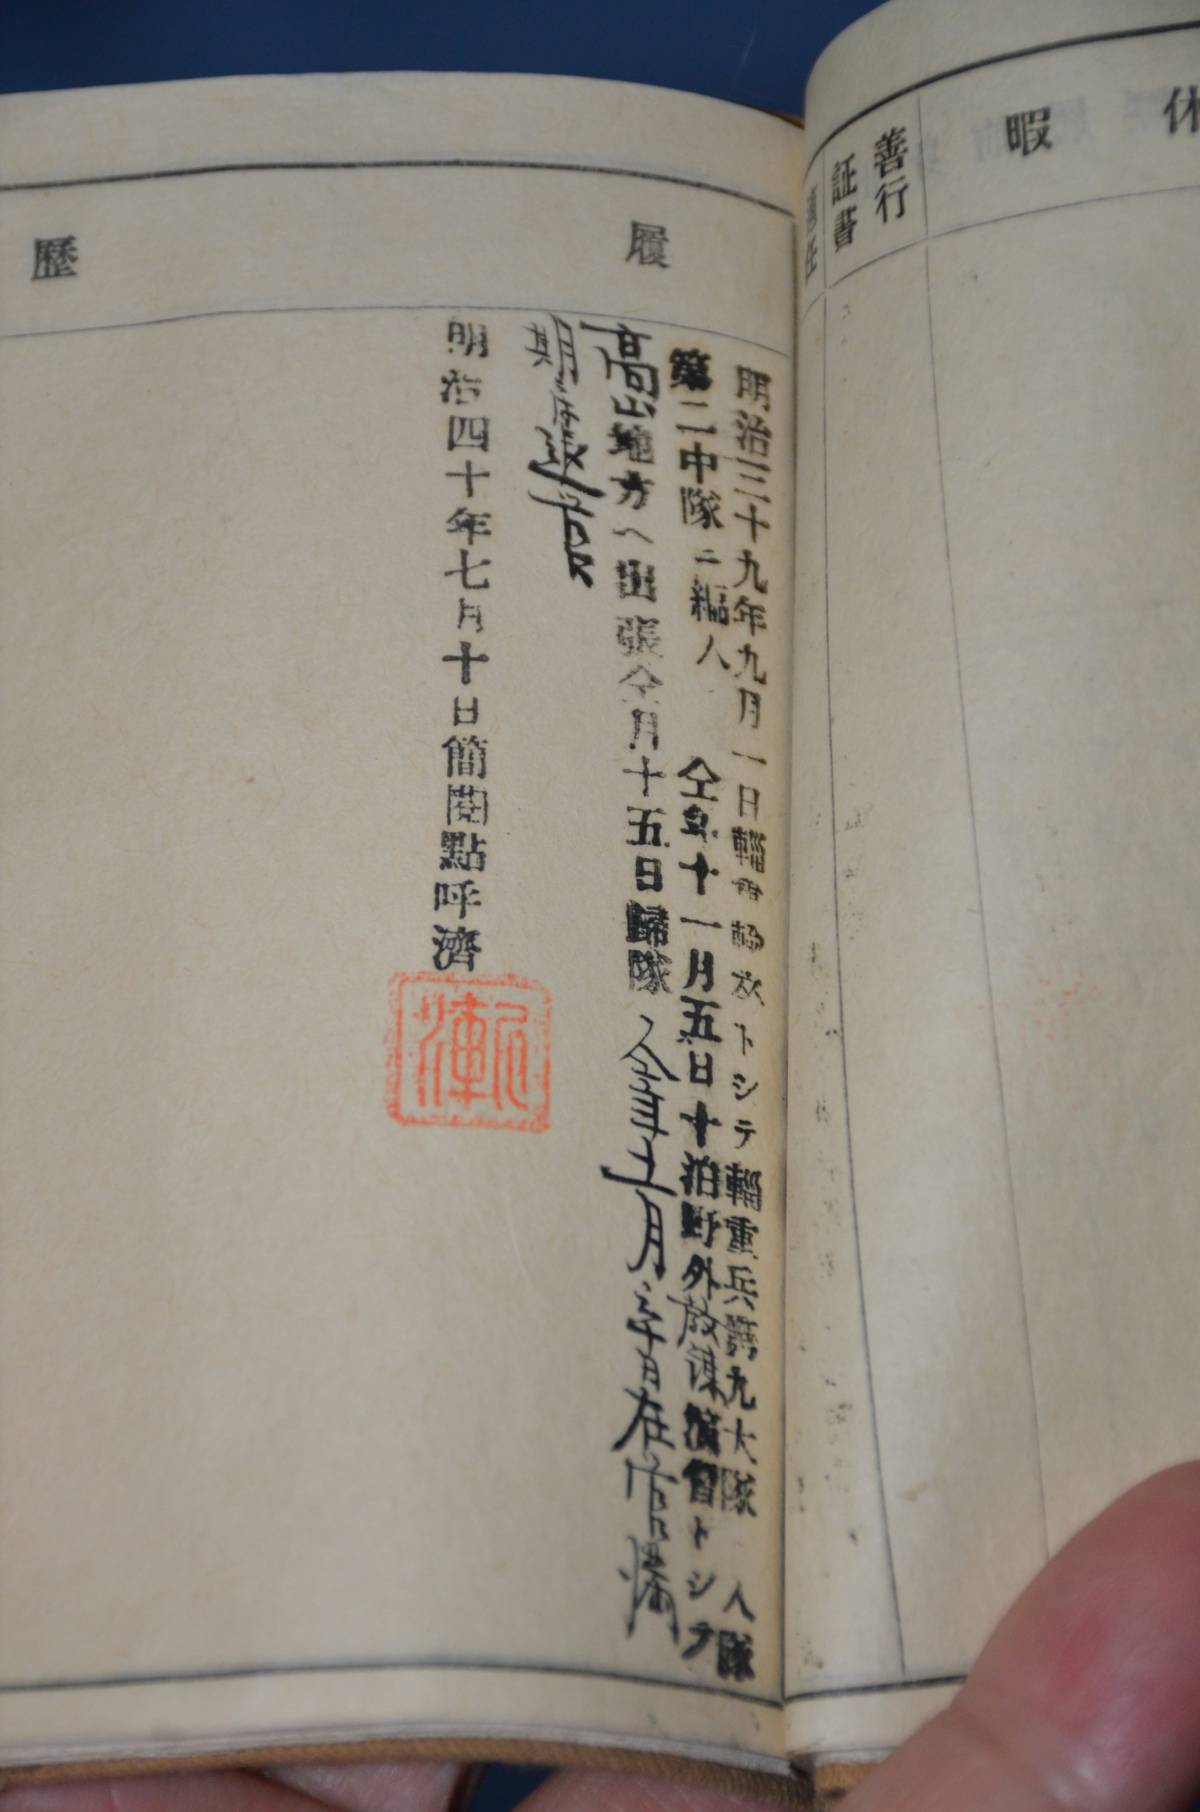 休暇
善行
証書
履歴
明治三十九年九月一日輜重輸卒トシテ輜重兵第九大隊入隊
第二中隊ニ編入 仝年十一月五日十泊野外放謀演習トシテ
高山地方ヘ出張仝月十五日歸隊 仝年十一月三十日在営満
期退営
明治四十年七月十日簡閲點呼濟